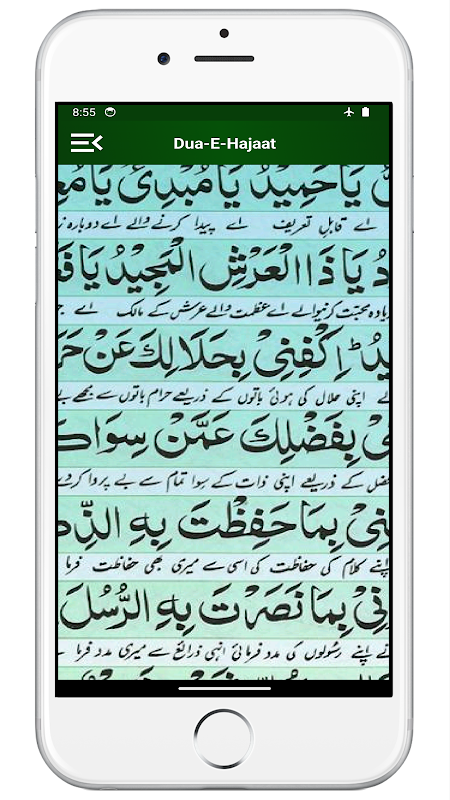 8:55
Dua-E-Hajaat
يَا حَمِيْدُ يَا مُبْدِئُ يَا
اے قابل تعریف اے پیدا کرنے والے اے دوبارہ
يَا ذَا الْعَرْشِ الْمَجِيْدُ يَا
محبّت کرنیوالے اے عظمت والے عرش کے مالک اے
اِكْفِنِيْ بِحَلَالِكَ عَنْ
اپنی حلال کی ہوئی باتوں کے ذریعے حرام باتوں سے مجھے
بِفَضْلِكَ عَمَّنْ سِوَاكَ
کے ذریعے اپنی ذات کے سوا تمام سے بے پروا کردے
بِمَا حَفِظْتَ بِهِ
اپنے کلام کی حفاظت کی اسی سے میری بھی حفاظت فرما
بِمَا نَصَرْتَ بِهِ الرُّسُلَ
اپنے رسولوں کی مدد فرمائی انہی ذرائع سے میری مدد فرما